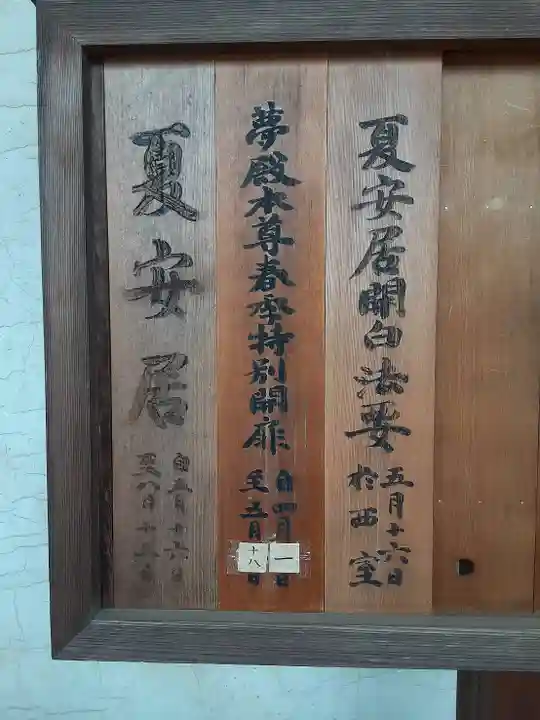 夏安居開白法要
五月十六日
於西室
夢殿本尊春季特別開扉
自四月一日
至五月十八日
夏安居
自五月十六日
至八月十五日